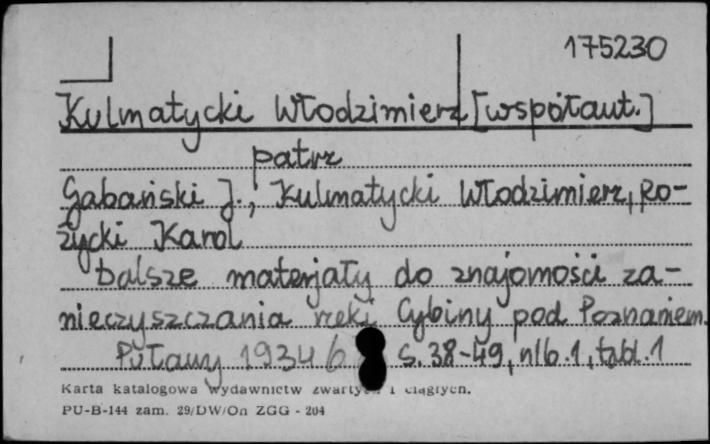 175230
Kulmatycki Włodzimierz [współaut.]
patrz
Gabański J., Kulmatycki Włodzimierz, Ro-
życki Karol
Dalsze materjały do znajomości za-
nieczyszczania rzeki Cybiny pod Poznaniem.
Puławy 1934 s. 38-49, nlb. 1, tabl. 1
Karta katalogowa wydawnictw zwartych i ciągłych.
PU-B-144 zam. 29/DW/On ZGG - 204